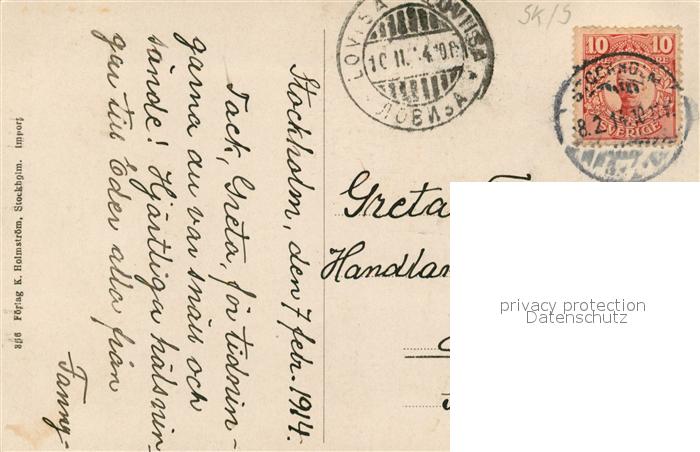 SK/S
LOVISA LOVIISA
10.II.14.10.
ЛОВИЗА
10 10
STOCKHOLM
8.2.14.10
SVERIGE
Stockholm, den 7 febr. 1914.
Tack, Greta, för tidnin-
garna du var snäll och
sände! Hjärtliga hälsnin-
gar till Eder alla från
Fanny-
Greta
Handlan
privacy protection
Datenschutz
386 Förlag K. Holmström, Stockholm. Import